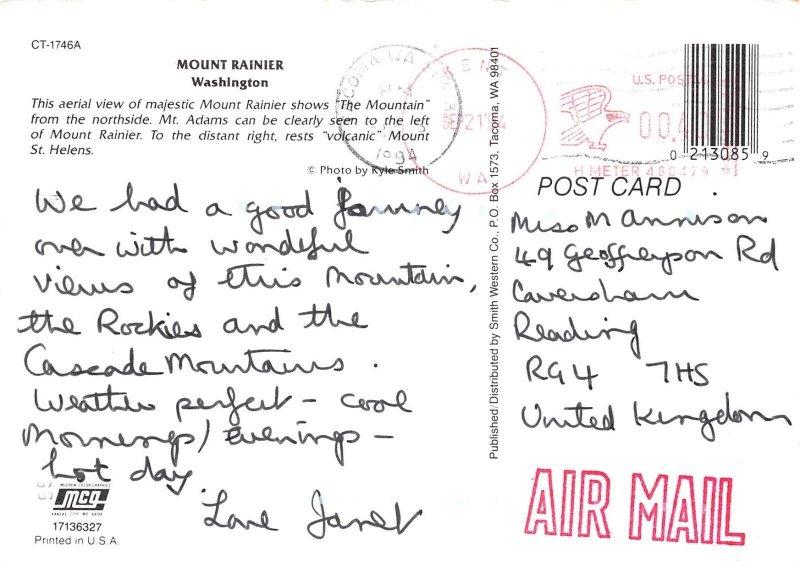 CT-1746A
MOUNT RAINIER
Washington
This aerial view of majestic Mount Rainier shows "The Mountain"
from the northside. Mt. Adams can be clearly seen to the left
of Mount Rainier. To the distant right, rests "volcanic" Mount
St. Helens.
© Photo by Kyle Smith
We had a good journey
over with wonderful
views of this Mountain,
the Rockies and the
Cascade Mountains.
Weather perfect – cool
Mornings/evenings –
hot day
Love Janet
MCG
17136327
Printed in U.S.A.
Published/Distributed by Smith Western Co., P.O. Box 1573, Tacoma, WA 98401
TACOMA WA
PM
1994
KENT
SEP 21 '94
WA
U.S. POSTAGE
H METER 480429
0 213085 9
POST CARD
Miss M Annison
49 Geoffreyson Rd
Caversham
Reading
RG4 7HS
United Kingdom
AIR MAIL